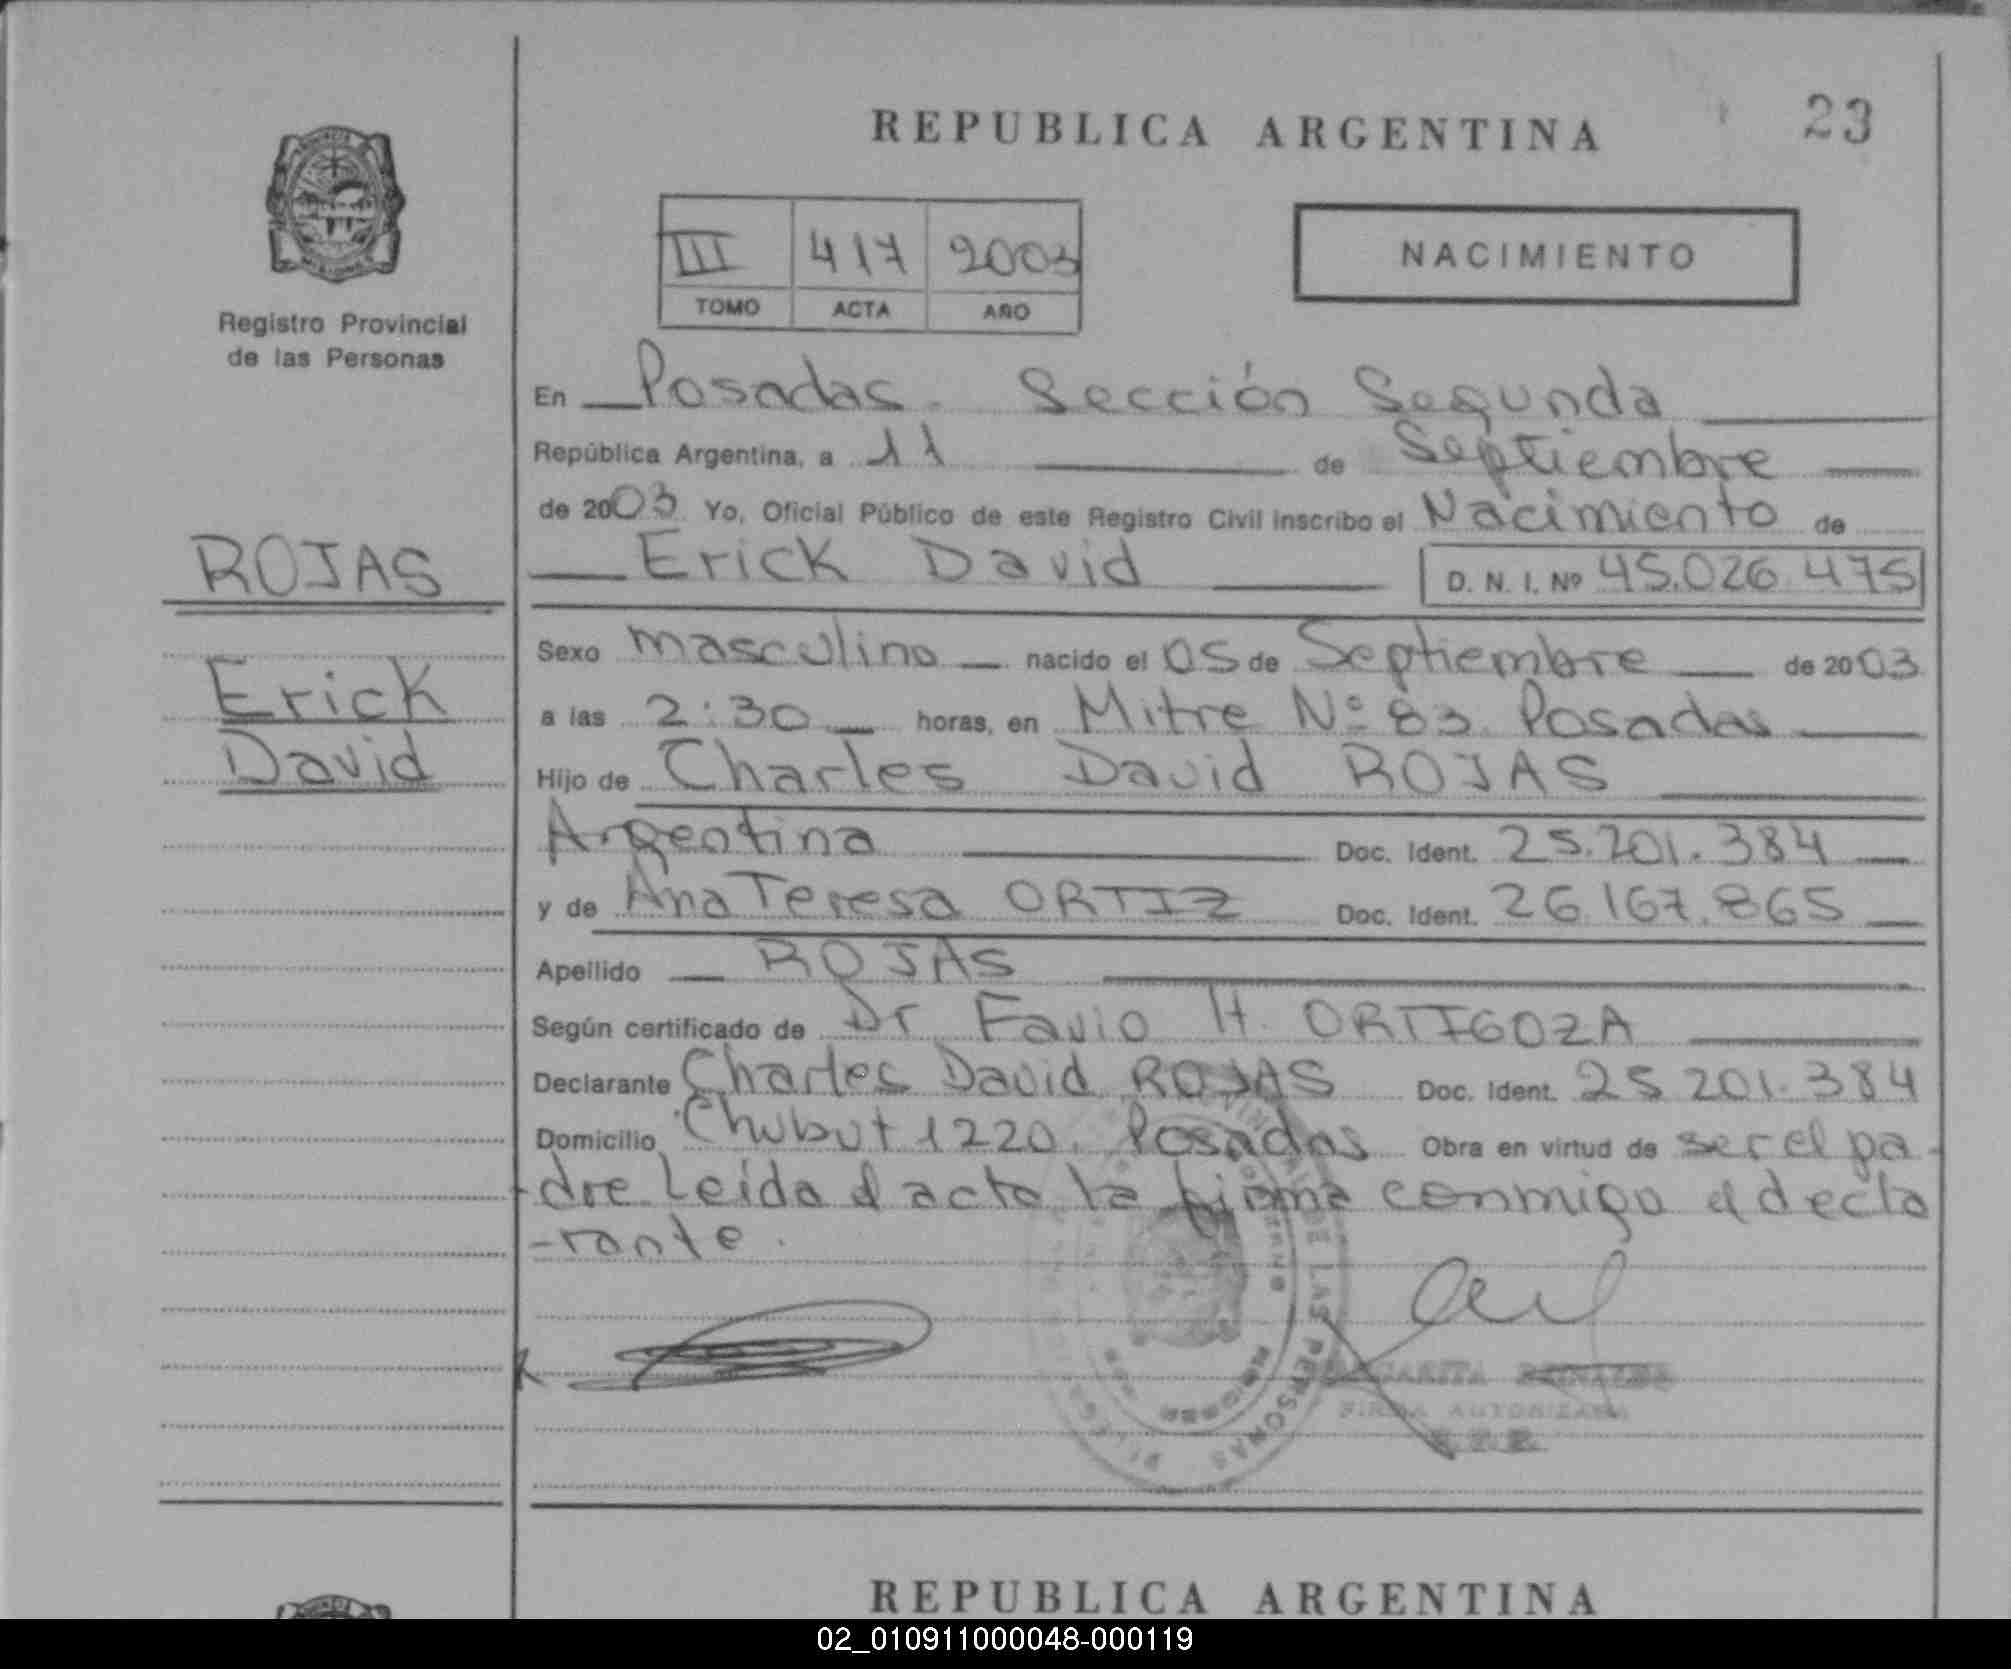 REPUBLICA ARGENTINA
23
III 417 2003
TOMO ACTA AÑO
NACIMIENTO
Registro Provincial
de las Personas
ROJAS
Erick
David
En Posadas. Sección Segunda
República Argentina, a 11 de Septiembre
de 2003 Yo, Oficial Público de este Registro Civil inscribo el Nacimiento de
Erick David D. N. I. Nº 45.026.475
Sexo masculino nacido el 05 de Septiembre de 2003
a las 2:30 horas, en Mitre Nº 83. Posadas
Hijo de Charles David ROJAS
Argentina Doc. Ident. 25.201.384
y de Ana Teresa ORTIZ Doc. Ident. 26.167.865
Apellido ROJAS
Según certificado de Dr Favio H. ORTIGOZA
Declarante Charles David ROJAS Doc. Ident. 25 201.384
Domicilio Chubut 1220. Posadas Obra en virtud de ser el pa-
-dre Leída el acta la firma conmigo el decla
-rante.
DE LAS PERSONAS
FIRMA AUTORIZADA
REPUBLICA ARGENTINA
02_010911000048-000119